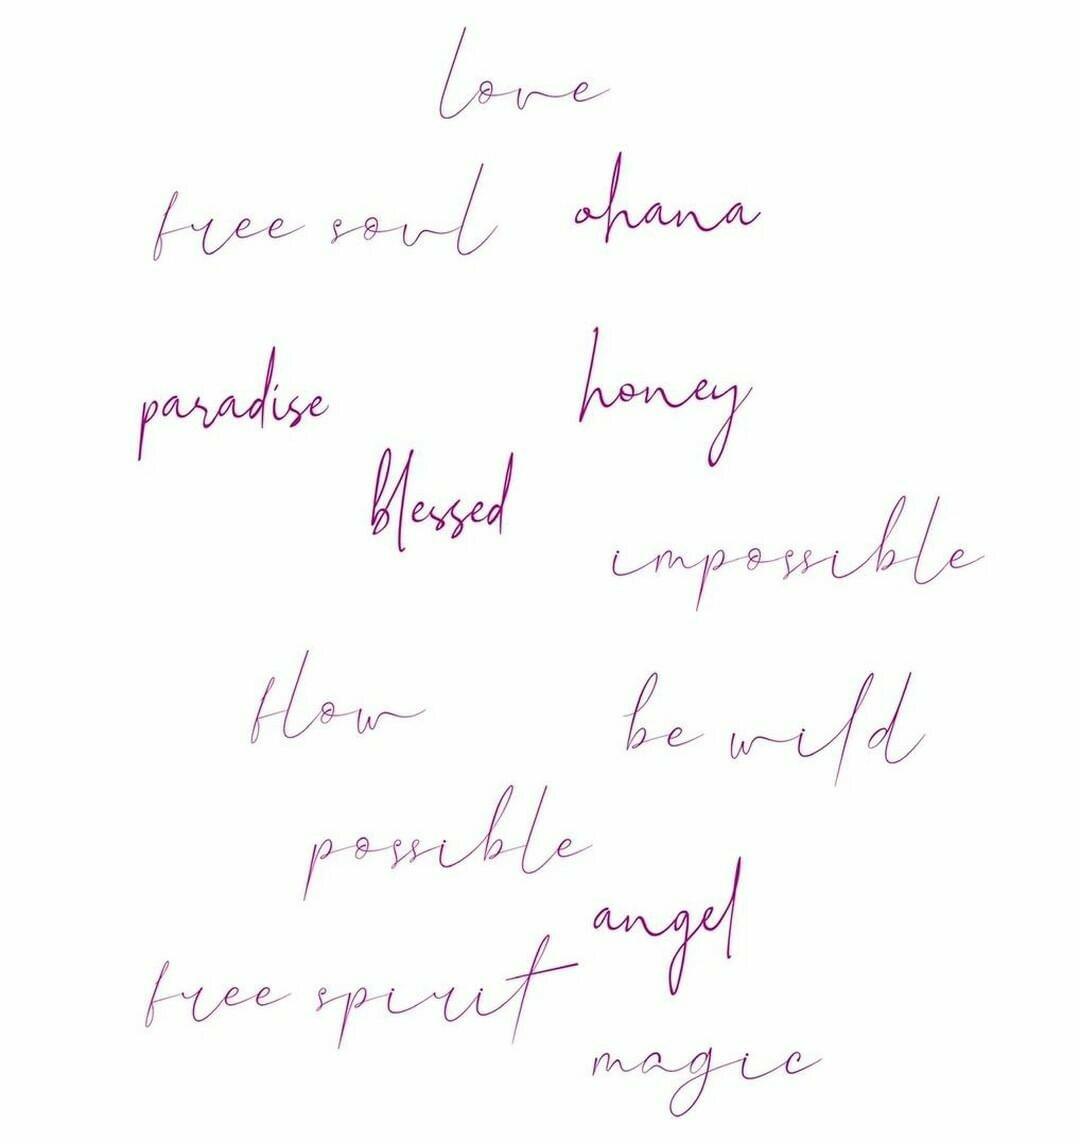 love
free soul ohana
paradise honey
blessed
impossible
flow be wild
possible
angel
free spirit
magic